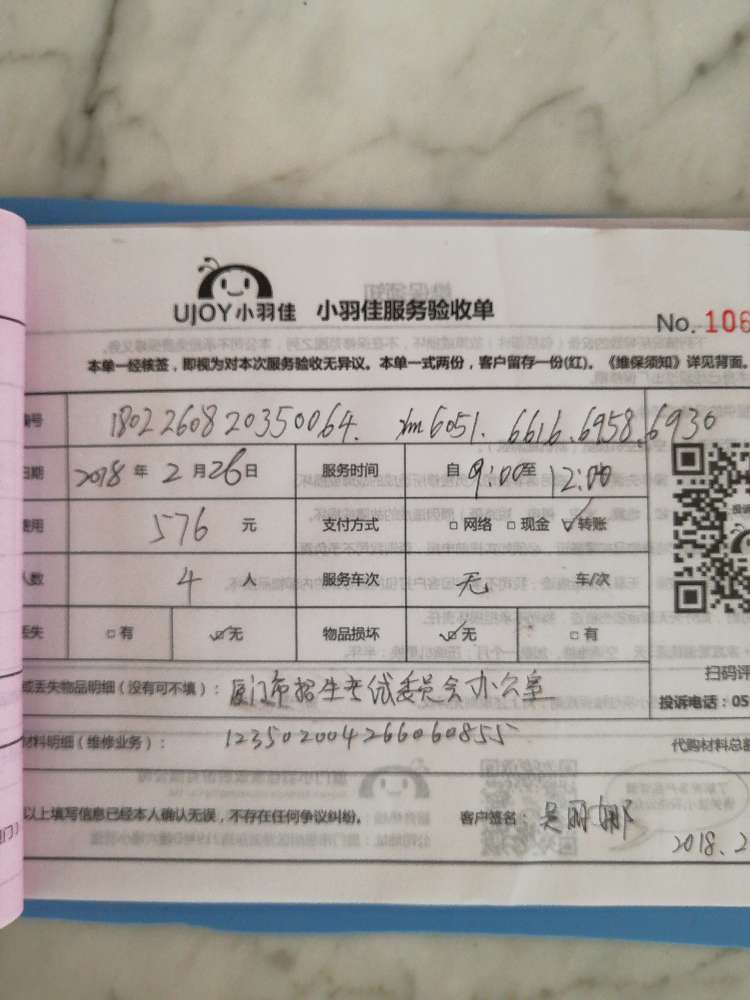 UJOY小羽佳 小羽佳服务验收单
No. 106
本单一经核签，即视为对本次服务验收无异议。本单一式两份，客户留存一份(红)。《维保须知》详见背面。
编号 1802260820350064. xm6051. 6616.6958.6930
日期 2018年2月26日 服务时间 自9:00至12:00
费用 576元 支付方式 □网络 □现金 ☑转账
人数 4人 服务车次 无 车/次
丢失 □有 ☑无 物品损坏 ☑无 □有
或丢失物品明细（没有可不填）：厦门市招生考试委员会办公室
扫码评
投诉电话：05
材料明细（维修业务）：12350200426606085S 代购材料总额
以上填写信息已经本人确认无误，不存在任何争议纠纷。 客户签名：吴丽娜
2018.2